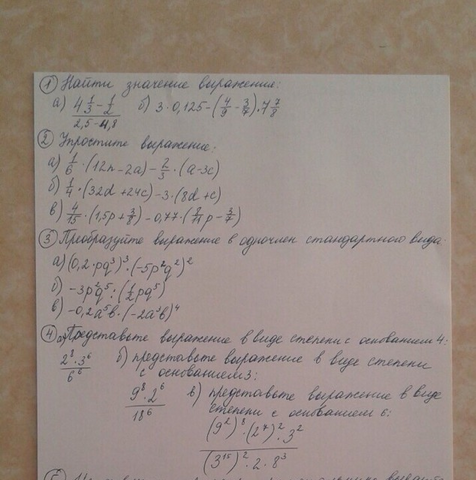 ① Найти значение выражения:
а) (4 1/3 - 1/2)/(2,5-4,8) б) 3·0,125-(4/9 - 3/7)·7 7/8
② Упростите выражение:
а) 1/6·(12n-2a)-2/3·(a-3c)
б) 1/4·(32d+24c)-3·(8d+c)
в) 4/15·(1,5p+3/8)-0,77·(8/11p-3/7)
③ Преобразуйте выражение в одночлен стандартного вида:
а) (0,2·pq³)³·(-5p²q²)²
б) -3p⁴q⁵:(1/2pq⁵)
в) -0,2a⁵b·(-2a³b)⁴
④ а) Представьте выражение в виде степени с основанием 4:
2⁸·3⁶/6⁶ б) представьте выражение в виде степени
с основанием 3:
9⁸·2⁶/18⁶ в) представьте выражение в виде
степени с основанием 6:
(9²)⁸·(2⁷)²·3²/(3¹⁵)²·2·8³